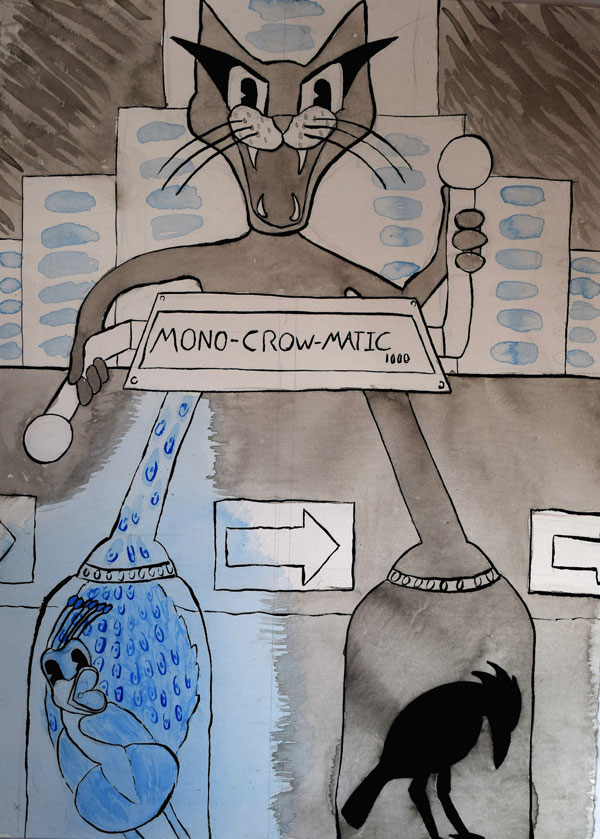 MONO-CROW-MATIC
1000